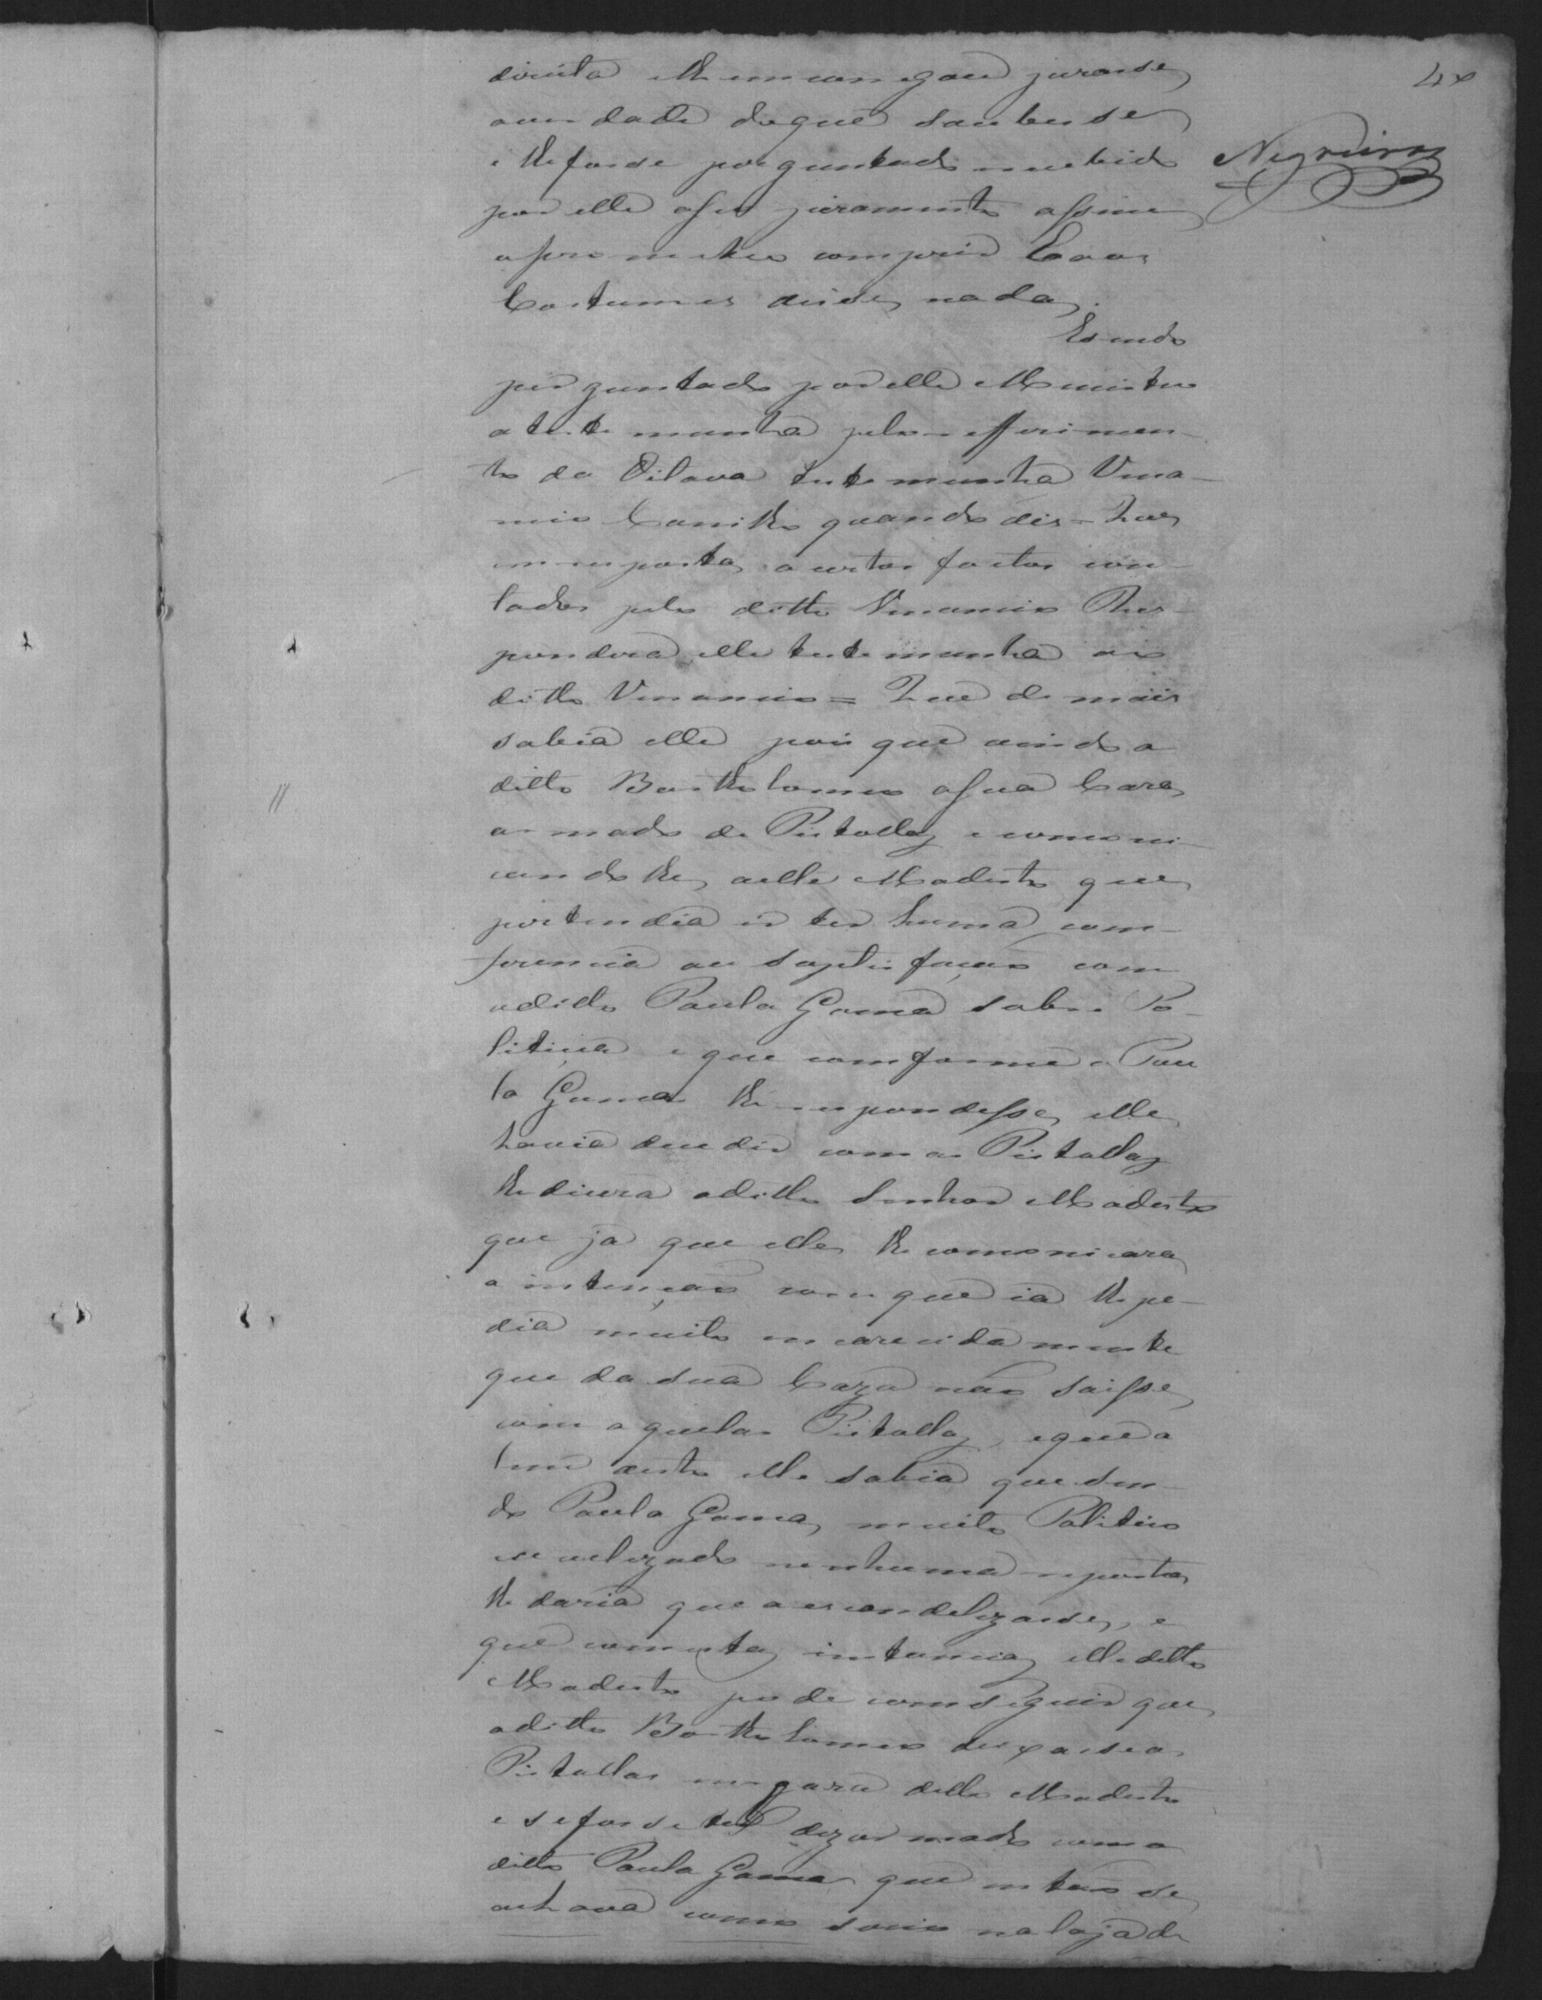 direita lhe emcarregou jurasse
averdade doque soubesse
e lhe fosse perguntado recebido
por elle ofeu juramento assim
oprometeu comprir Eaos
Costumes disse nada.
Esendo
perguntado por elle Menistro
atestemunha pelo refferimen-
to da Oitava testemunha Vena-
ncio quando dis = Que
em resposta a certos factos con-
tados pelo ditto Venancio Res-
pondera elle testemunha ao
ditto Venancio = Que de mais
sabia elle pois que aindo o
ditto Bartholomeo asua Caza
armado de Pistollas e comoni-
cando lhe aelle Modesto que
pertendia ir ter huma com-
ferencia ou sastisfação com
odido Paula Gama sobre Po-
litica e que comforme o Pau
la Gama lhe respondesse elle
havia decedir com as Pistollas
lhe dicera oditto Senhor Modesto
que já que elle lhe comonicara
a intenção com que ia lhe pe-
dia muito emcarecidamente
que da sua Caza não saisse
com aquelas Pistollas, e que a
lem disto elle sabia que sen-
do Paula Gama muito Politico
e cevelizado nenhuma reposta
lhe daria que o escandelizasse, e
que com esta instancia elle ditto
Modesto pode comseguir que
oditto Bartholomeo deixasse as
Pistollas em para dello Modesto
e se fosse ter dezarmado com o
ditto Paula Gama que então se
achava como socio na loja de
48
Negreiros